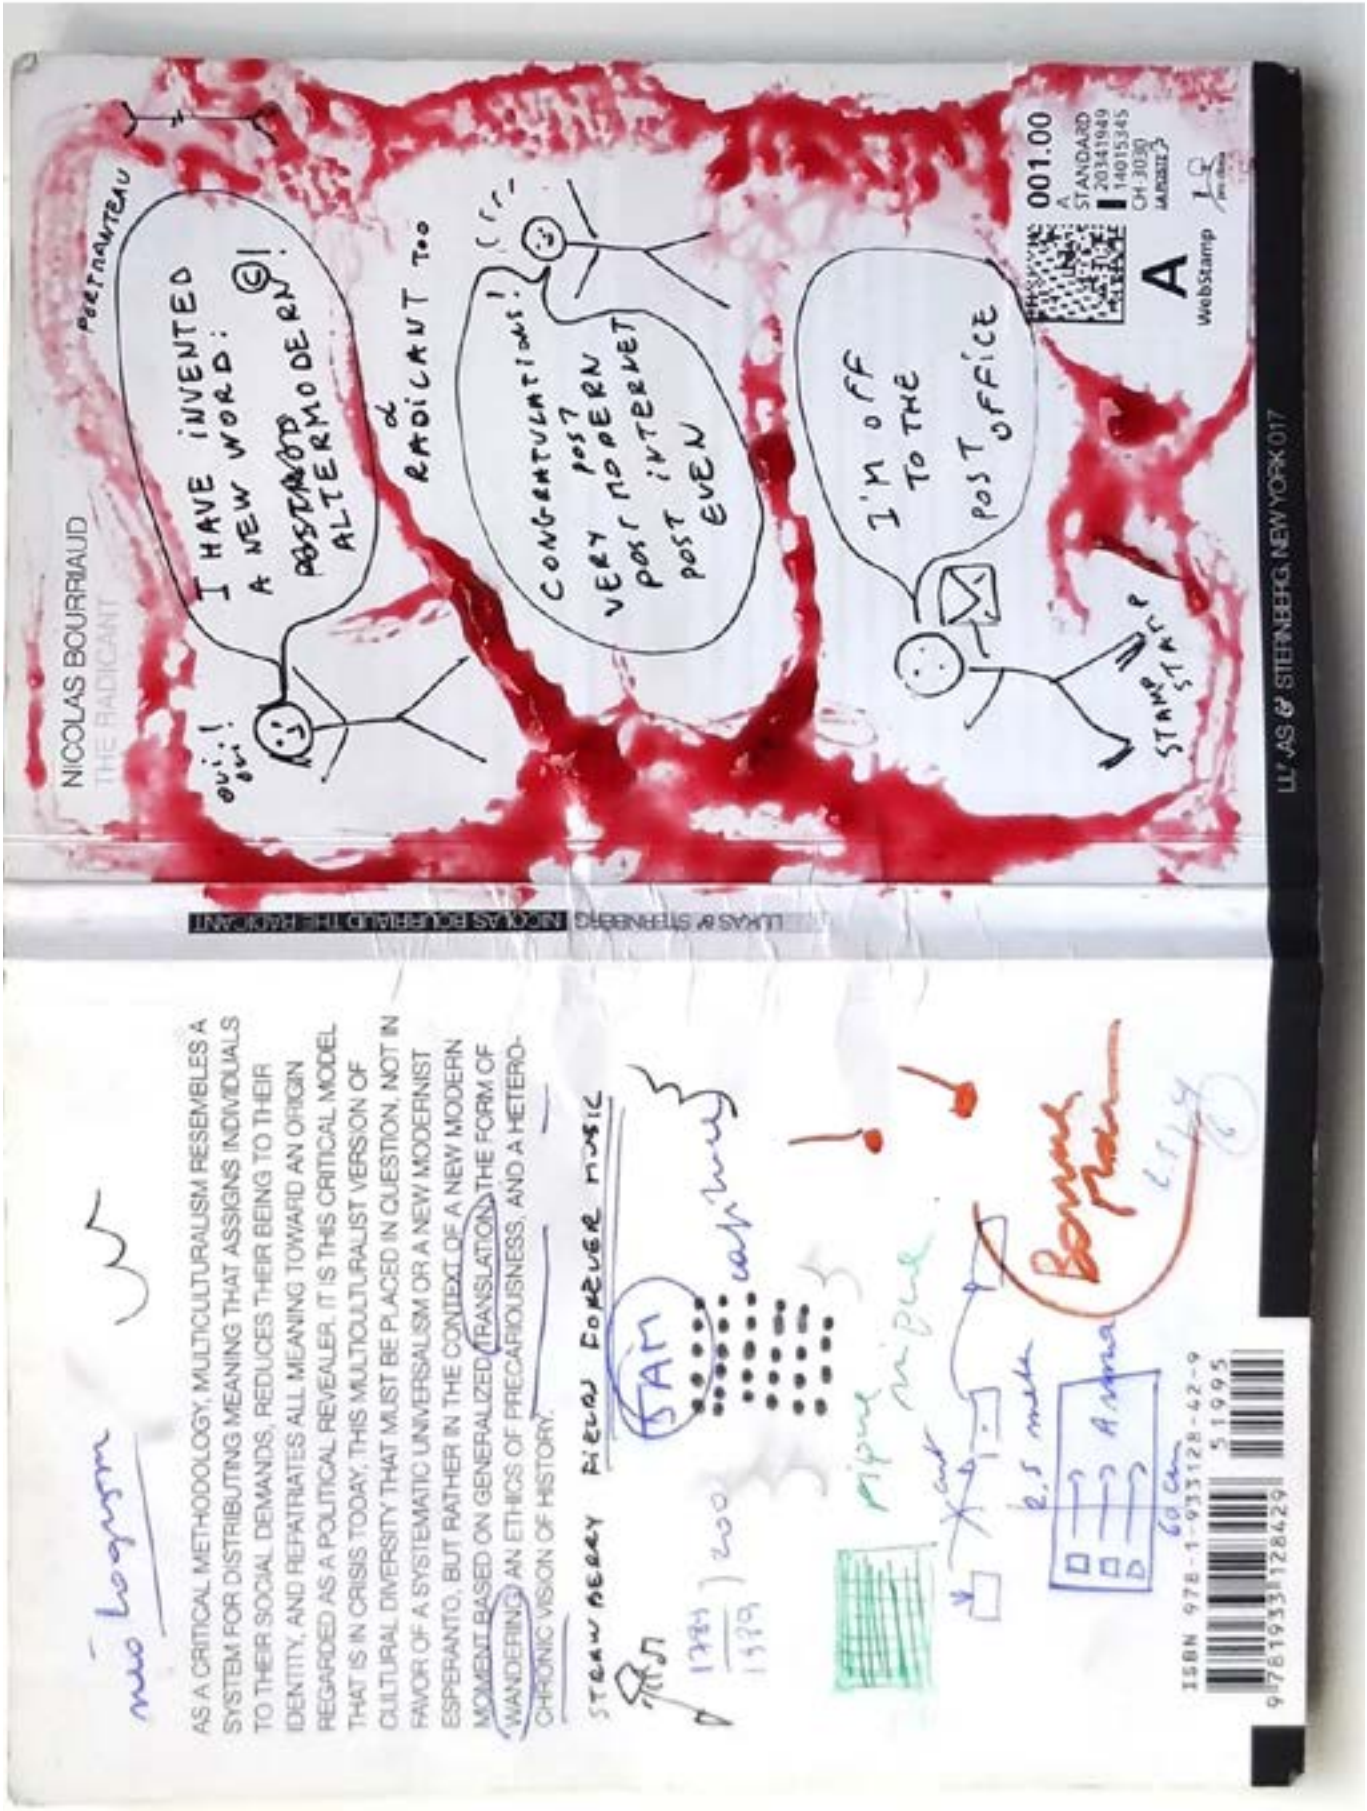 NICOLAS BOURRIAUD
THE RADICANT
PORTMANTEAU
I HAVE INVENTED
A NEW WORD:
ALTERMODERN ©!
oui!
oui!
&
RADICANT TOO
CONGRATULATIONS!
VERY POST
POST MODERN
POST INTERNET
POST EVEN
I'M OFF
TO THE
POST OFFICE
STAMP
STAMP
A
WebStamp
001.00
A
STANDARD
20341949
14015345
CH-3030
LA POSTE
& STERNBERG, NEW YORK 017
NICOLAS BOURRIAUD THE RADICANT
LUKAS & STERNBERG
néo logism
AS A CRITICAL METHODOLOGY, MULTICULTURALISM RESEMBLES A
SYSTEM FOR DISTRIBUTING MEANING THAT ASSIGNS INDIVIDUALS
TO THEIR SOCIAL DEMANDS, REDUCES THEIR BEING TO THEIR
IDENTITY, AND REPATRIATES ALL MEANING TOWARD AN ORIGIN
REGARDED AS A POLITICAL REVEALER. IT IS THIS CRITICAL MODEL
THAT IS IN CRISIS TODAY, THIS MULTICULTURALIST VERSION OF
CULTURAL DIVERSITY THAT MUST BE PLACED IN QUESTION, NOT IN
FAVOR OF A SYSTEMATIC UNIVERSALISM OR A NEW MODERNIST
ESPERANTO, BUT RATHER IN THE CONTEXT OF A NEW MODERN
MOMENT BASED ON GENERALIZED TRANSLATION, THE FORM OF
WANDERING, AN ETHICS OF PRECARIOUSNESS, AND A HETERO-
CHRONIC VISION OF HISTORY.
STRAWBERRY FIELDS FOREVER MUSIC
JAM
1789
1989
200
pique nique
Bonne
60 cm
ISBN 978-1-933128-42-9
51995
9 781933 128429